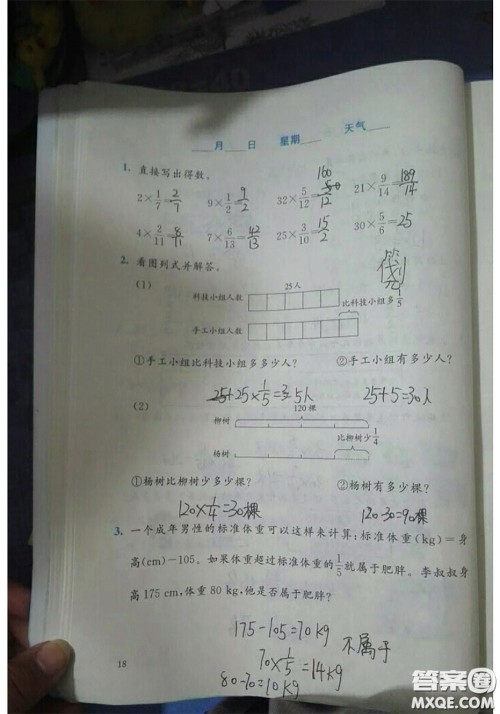 ____月____日 星期____ 天气____
1. 直接写出得数。
2×1/7=2/7 9×1/2=9/2 32×5/12=160/12 21×9/14=189/14
4×2/11=8/11 7×6/13=42/13 25×3/10=15/2 30×5/6=25
2. 看图列式并解答。
(1)
25人
科技小组人数
比科技小组多1/5
手工小组人数
①手工小组比科技小组多多少人? ②手工小组有多少人?
25+25×1/5=35人 25+5=30人
(2)
120棵
柳树
比柳树少1/4
杨树
①杨树比柳树少多少棵? ②杨树有多少棵?
120×1/4=30棵 120-30=90棵
3. 一个成年男性的标准体重可以这样来计算:标准体重(kg)=身
高(cm)-105,如果体重超过标准体重的1/5就属于肥胖。李叔叔身
高175 cm,体重80 kg,他是否属于肥胖?
175-105=70kg
不属于
70×1/5=14kg
80-70=10kg
18
答案圈
MXQE.COM